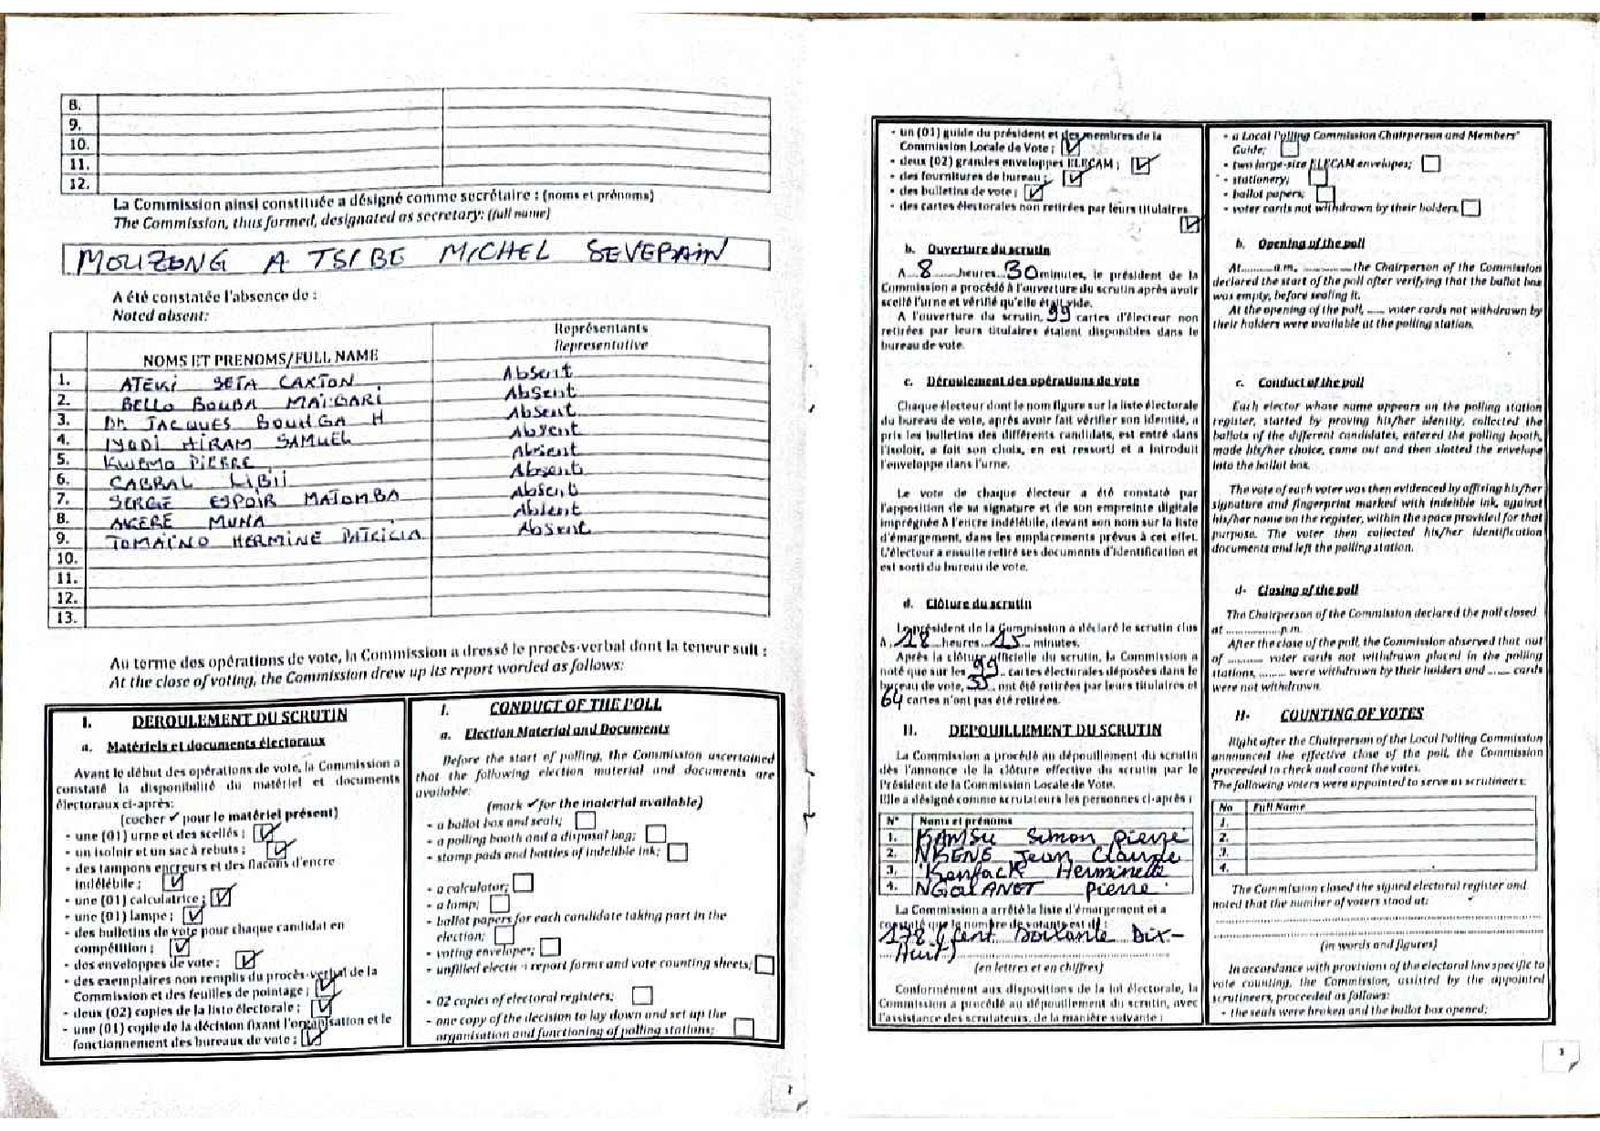 8.
9.
10.
11.
12.
La Commission ainsi constituée a désigné comme secrétaire : (noms et prénoms)
The Commission, thus formed, designated as secretary: (full name)
MOUZONG A TSIBE MICHEL SEVERAIN
A été constatée l'absence de :
Noted absent:
NOMS ET PRENOMS/FULL NAME
Représentants
Representative
1. ATEKI SETA CAXTON Absent
2. BELLO BOUBA MAIGARI Absent
3. Dr. JACQUES BOUHGA H Absent
4. IYODI HIRAM SAMUEL Absent
5. KWEMO PIERRE Absent
6. CABRAL LIBII Absent
7. SERGE ESPOIR MATOMBA Absent
8. AKERE MUNA Absent
9. TOMAINO HERMINE PATRICIA Absent
10.
11.
12.
13.
Au terme des opérations de vote, la Commission a dressé le procès-verbal dont la teneur suit :
At the close of voting, the Commission drew up its report worded as follows:
I. DEROULEMENT DU SCRUTIN
a. Matériels et documents électoraux
Avant le début des opérations de vote, la Commission a
constaté la disponibilité du matériel et documents
électoraux ci-après:
(cocher ✓ pour le matériel présent)
- une (01) urne et des scellés ;
- un isoloir et un sac à rebuts ;
- des tampons encreurs et des flacons d'encre
indélébile ;
- une (01) calculatrice ;
- une (01) lampe ;
- des bulletins de vote pour chaque candidat en
compétition ;
- des enveloppes de vote ;
- des exemplaires non remplis du procès-verbal de la
Commission et des feuilles de pointage ;
- deux (02) copies de la liste électorale ;
- une (01) copie de la décision fixant l'organisation et le
fonctionnement des bureaux de vote ;
I. CONDUCT OF THE POLL
a. Election Material and Documents
Before the start of polling, the Commission ascertained
that the following election material and documents are
available:
(mark ✓ for the material available)
- a ballot box and seals;
- a polling booth and a disposal bag;
- stamp pads and bottles of indelible ink;
- a calculator;
- a lamp;
- ballot papers for each candidate taking part in the
election;
- voting envelopes;
- unfilled election report forms and vote counting sheets;
- 02 copies of electoral registers;
- one copy of the decision to lay down and set up the
organisation and functioning of polling stations;
2
- un (01) guide du président et des membres de la
Commission Locale de Vote ;
- deux (02) grandes enveloppes ELECAM ;
- des fournitures de bureau ;
- des bulletins de vote ;
- des cartes électorales non retirées par leurs titulaires
b. Ouverture du scrutin
A 8 heures 30 minutes, le président de la
Commission a procédé à l'ouverture du scrutin après avoir
scellé l'urne et vérifié qu'elle était vide.
A l'ouverture du scrutin, 99 cartes d'électeur non
retirées par leurs titulaires étaient disponibles dans le
bureau de vote.
c. Déroulement des opérations de vote
Chaque électeur dont le nom figure sur la liste électorale
du bureau de vote, après avoir fait vérifier son identité, a
pris les bulletins des différents candidats, est entré dans
l'isoloir, a fait son choix, en est ressorti et a introduit
l'enveloppe dans l'urne.
Le vote de chaque électeur a été constaté par
l'apposition de sa signature et de son empreinte digitale
imprégnée à l'encre indélébile, devant son nom sur la liste
d'émargement, dans les emplacements prévus à cet effet.
L'électeur a ensuite retiré ses documents d'identification et
est sorti du bureau de vote.
d. Clôture du scrutin
Le président de la Commission a déclaré le scrutin clos
A 18 heures 15 minutes.
Après la clôture officielle du scrutin, la Commission a
noté que sur les 99 cartes électorales déposées dans le
bureau de vote, 35 ont été retirées par leurs titulaires et
64 cartes n'ont pas été retirées.
II. DEPOUILLEMENT DU SCRUTIN
La Commission a procédé au dépouillement du scrutin
dès l'annonce de la clôture effective du scrutin par le
Président de la Commission Locale de Vote.
Elle a désigné comme scrutateurs les personnes ci-après :
N° Noms et prénoms
1. KAMSU Simon Pierre
2. NBENG Jean Claude
3. Kenfack Herminette
4. NGOLANOT Pierre
La Commission a arrêté la liste d'émargement et a
constaté que le nombre de votants est de :
178 (Cent Soixante Dix-
Huit)
(en lettres et en chiffres)
Conformément aux dispositions de la loi électorale, la
Commission a procédé au dépouillement du scrutin, avec
l'assistance des scrutateurs, de la manière suivante :
- a Local Polling Commission Chairperson and Members'
Guide;
- two large-size ELECAM envelopes;
- stationery;
- ballot papers;
- voter cards not withdrawn by their holders.
b. Opening of the poll
At........a.m. ............ the Chairperson of the Commission
declared the start of the poll after verifying that the ballot box
was empty, before sealing it.
At the opening of the poll, ...... voter cards not withdrawn by
their holders were available at the polling station.
c. Conduct of the poll
Each elector whose name appears on the polling station
register, started by proving his/her identity, collected the
ballots of the different candidates, entered the polling booth,
made his/her choice, came out and then slotted the envelope
into the ballot box.
The vote of each voter was then evidenced by affixing his/her
signature and fingerprint marked with indelible ink, against
his/her name on the register, within the space provided for that
purpose. The voter then collected his/her identification
documents and left the polling station.
d- Closing of the poll
The Chairperson of the Commission declared the poll closed
at ...............p.m.
After the close of the poll, the Commission observed that out
of .......... voter cards not withdrawn placed in the polling
stations, ......... were withdrawn by their holders and ...... cards
were not withdrawn.
II- COUNTING OF VOTES
Right after the Chairperson of the Local Polling Commission
announced the effective close of the poll, the Commission
proceeded to check and count the votes.
The following voters were appointed to serve as scrutineers:
No Full Name
1.
2.
3.
4.
The Commission closed the signed electoral register and
noted that the number of voters stood at:
(in words and figures)
In accordance with provisions of the electoral law specific to
vote counting, the Commission, assisted by the appointed
scrutineers, proceeded as follows:
- the seals were broken and the ballot box opened;
3